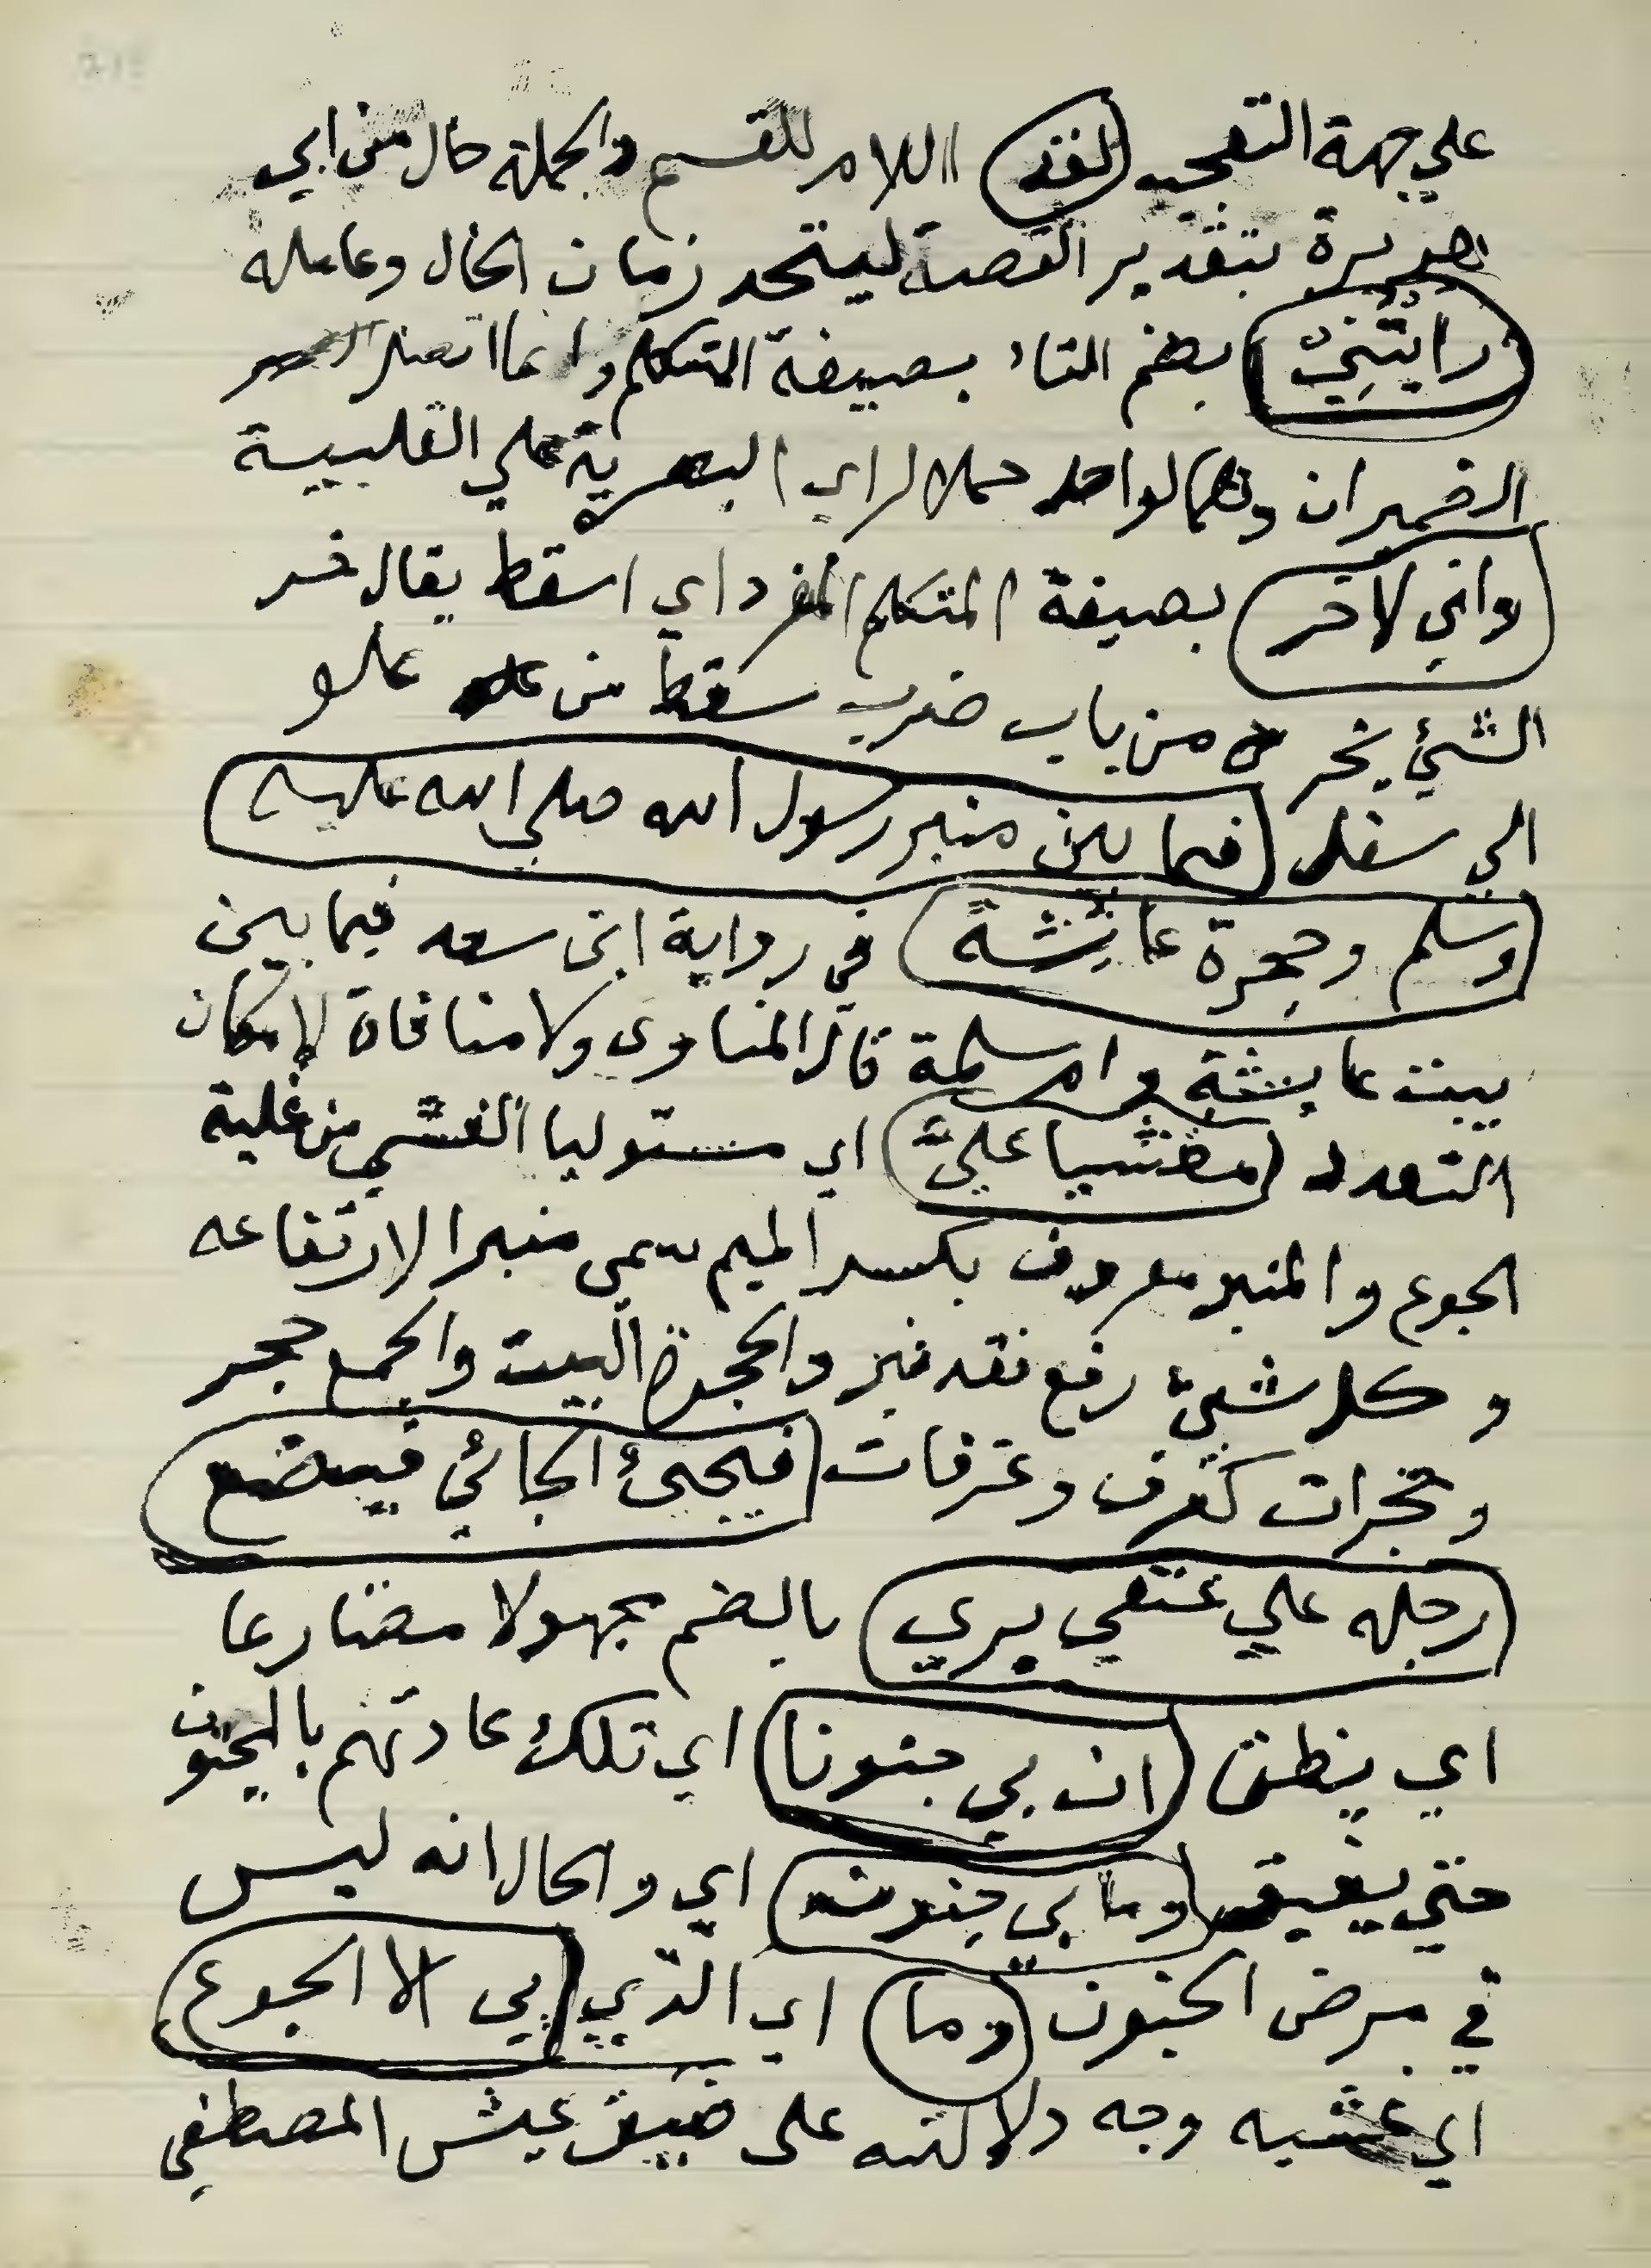 علي جهة التعجيب (لقد) اللام للقسم والجملة حال من ابي
هريرة بتقدير القصة ليتحد زمان الحال وعامله
(رايتُنِيْ) بضم التاء بصيغة المتكلم وانما اتصل
الضميران وهما لواحد حملا لراي البصرية علي القلبية
(واني لاخر) بصيغة المتكلم المفرد اي اسقط يقال خر
الشئ يخر من باب ضرب سقط من علو
الي سفل (فيما بين منبر رسول الله صلي الله عليه
وسلم وحجرة عائشة) في رواية ابن سعد فيما بين
بيت عايشة وام سلمة قال المناوى ولا منافاة لامكان
التعدد (مغشيا عليَّ) اي مستوليا الغشي من غلبة
الجوع والمنبر معروف بكسر الميم سمى منبرا لارتفاعه
وكل شيئ رفع فقد نبر والحجرة البيت والجمع حجر
وحجرات كغرف وغرفات (فيجئ الجائي فيضع
رجله علي عنقي يري) بالضم مجهولا مضارعا
اي يظن (ان بي جنونا) اي تلك عادتهم بالمجنون
حتي يفيق (وما بي جنون) اي والحال انه ليس
في مرض الجنون (وما) اي الذي (بي الا الجوع)
اي غشيه وجه دلالته على ضيق عيش المصطفي